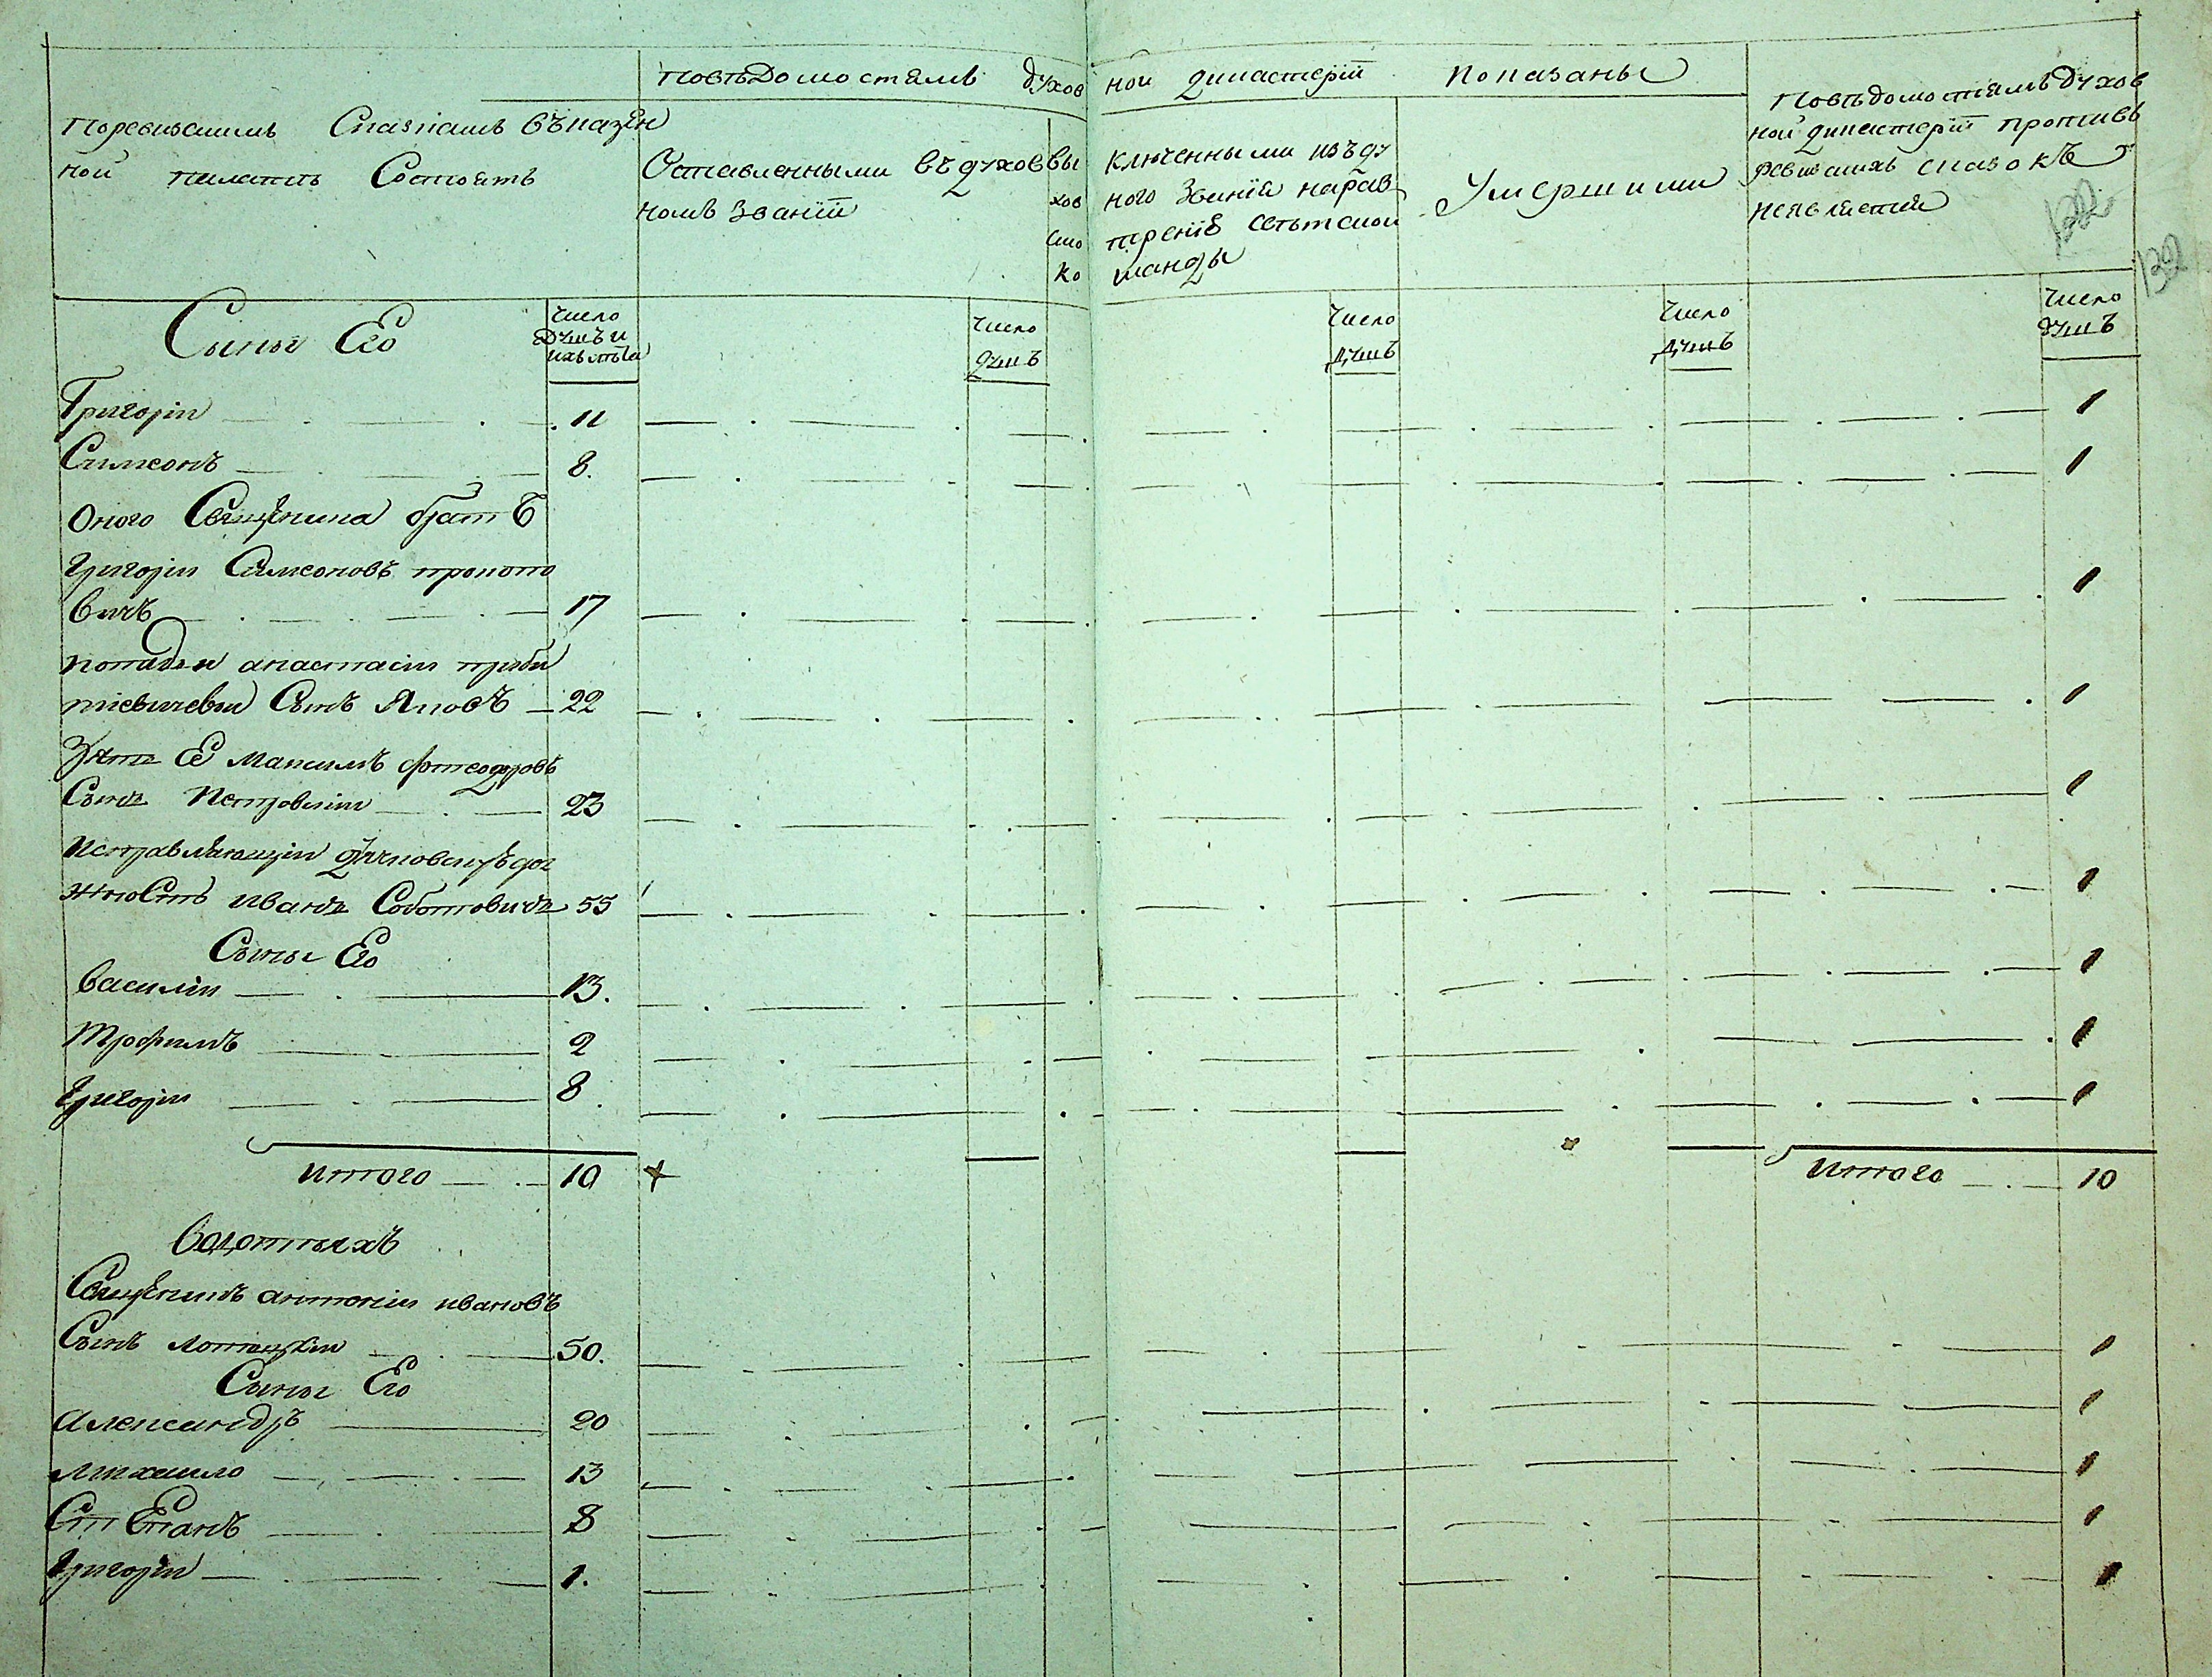 Поведомостямъ духов ной дикастеріи показаны
Поревизскимъ Сказкамъ въказен
ной палатѣ Состоятъ
Оставленными въ духов
номъ Званіи
вы ключенными изъ ду
хов ного Званія на разсмо
трение свѣтской
ко манды
Умершими
Поведомостямъ духов
ной дикастеріи противъ
ревизкихъ сказокъ
неявляется
132
132
Сыны Его
Число
душъ и
ихъ лѣта
Число
душъ
Число
душъ
Число
душъ
Число
душъ
Григорій 11 1
Симеонъ 8. 1
Оного Священика братъ
Григорій Симеоновъ
вичъ 17 1
попадьи анастасіи
Сынъ Яковъ 22 1
Зять Её Максимъ Фтеодоровъ
Сынъ Петровскій 23 1
Исправляющій дячковскую дол
жность Иванъ Соботовичъ 55 1
Сыны Его
Василій 13. 1
Трофимъ 2 1
Григорій 8 1
Итого 10 Итого 10
Священикъ антоній ивановъ
Сынъ Лотоцкій 50. 1
Сыны Его
Александръ 20 1
Михайло 13 1
Стефанъ 8 1
Григорій 1. 1